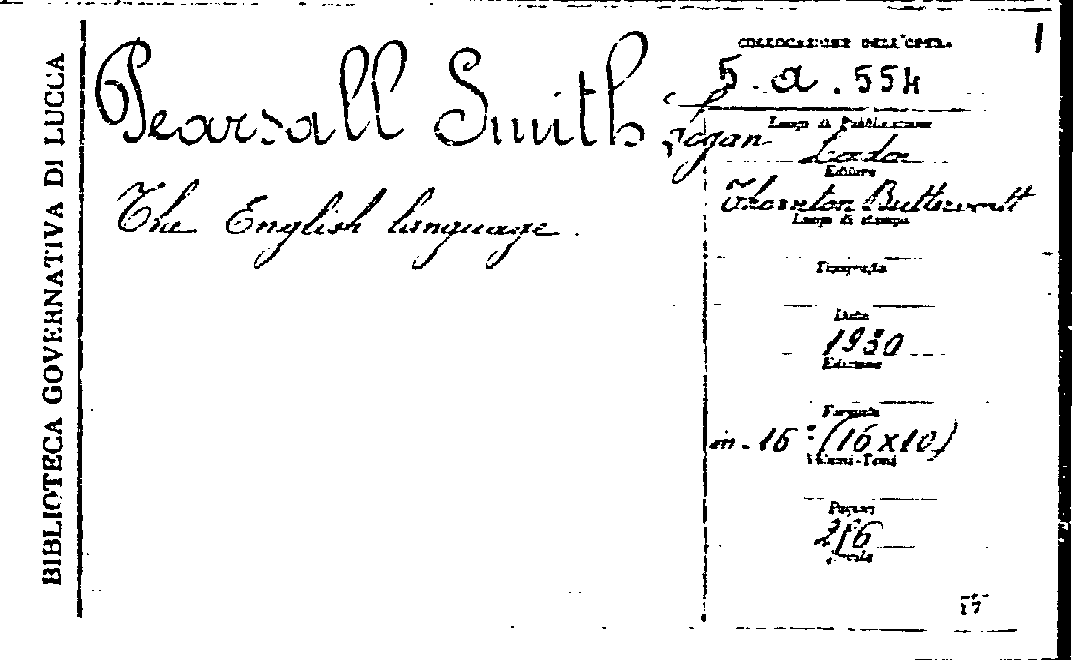 BIBLIOTECA GOVERNATIVA DI LUCCA
Pearsall Smith Logan
The English language.
COLLOCAZIONE DELL'OPERA
5. a. 554
Luogo di Pubblicazione
Londra
Editore
Thornton Butterworth
Luogo di stampa
Tipografia
Data
1930
Edizione
Formato
in-16° (16x10)
Volumi-Tomi
Pagine
17